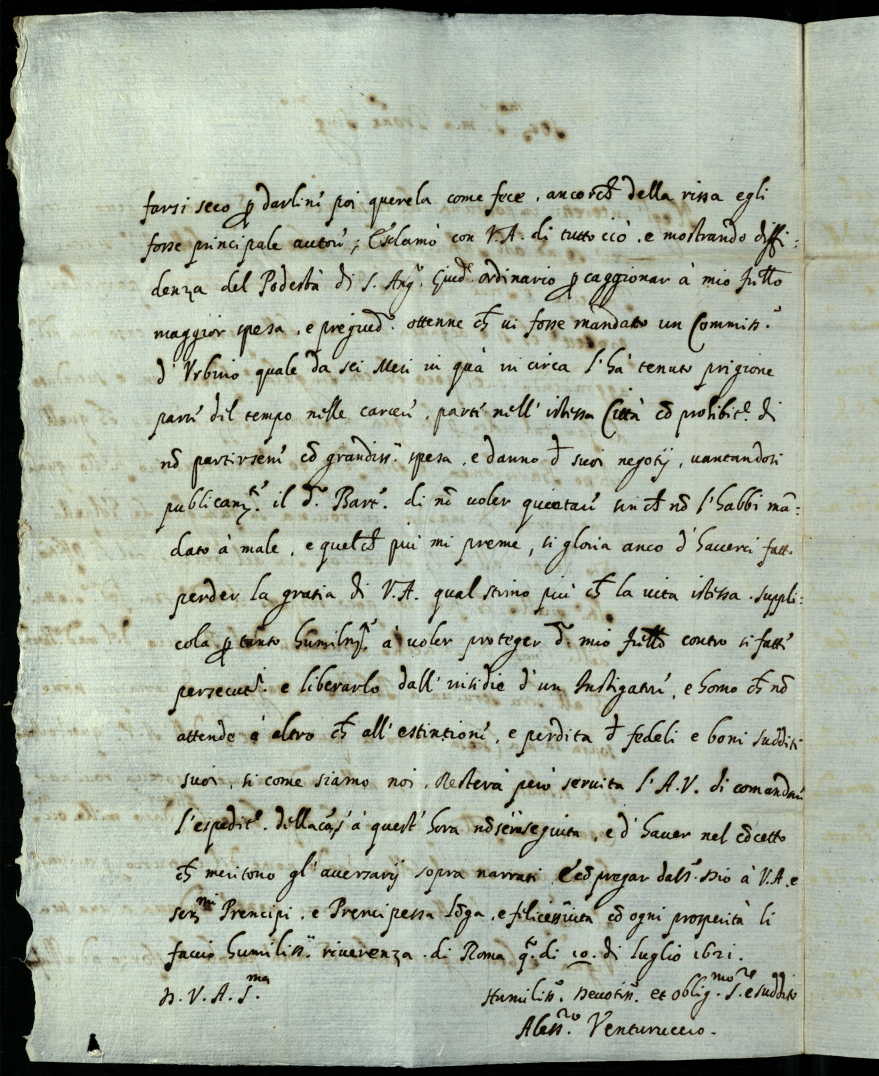 farsi seco p darlini poi querela come fece, ancorch della rissa egli
fosse principale autore; Esclamò con V.A. di tutto ciò, e mostrando diffi:
denza del Podestà di S. Ang.° Giud. ordinario p caggionar à mio frllo
maggior spesa, e pregiud.° ottenne ch vi fosse mandato un Commiss.°
d'Urbino quale da sei Mesi in quà in circa l'hà tenuto prigione
parte del tempo nelle carceri, parte nell'istessa Città cō prohibit.e di
nō partirsene cō grandiss.a spesa, e danno d suoi negotij, vantandosi
publicam.te il d.° Bart.° di nō voler quietare sin ch nō l'habbi mā:
dato à male, e quelch più mi preme, si gloria anco d'haverci fatto
perder la gratia di V.A. qual stimo più ch la vita istessa. suppli:
cola p tanto humilm.te à voler proteger d.° mio frllo contro si fatte
persecut.i e liberarlo dall'insidie d'un Instigatore, e homo ch nō
attende à altro ch all'estintione, e perdita d fedeli e boni sudditi
suoi, si come siamo noi, Resterà però servita l'A.V. di comandare
l'espedit.e della à quest'hora nō seguita, e d'haver nel cōcetto
ch meritono gl'aversarij sopra narrati. E cō pregar dal S. Dio à V.A. e
ser.mi Prencipi, e Prencipessa lōga, e felicess.a vita cō ogni prosperità li
faccio humiliss.a riverenza. di Roma q.to di 10. di luglio 1621.
D. V. A. S.ma
Humiliss.° Devotiss.° et oblig.mo S.re e suddito
Aless.ro Venturuccio.